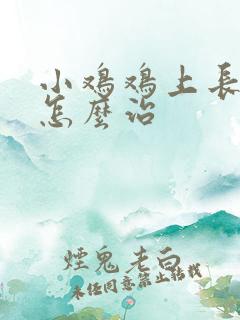 小鸡鸡上长
怎麽治
煙鬼老白
未经同意禁止转载